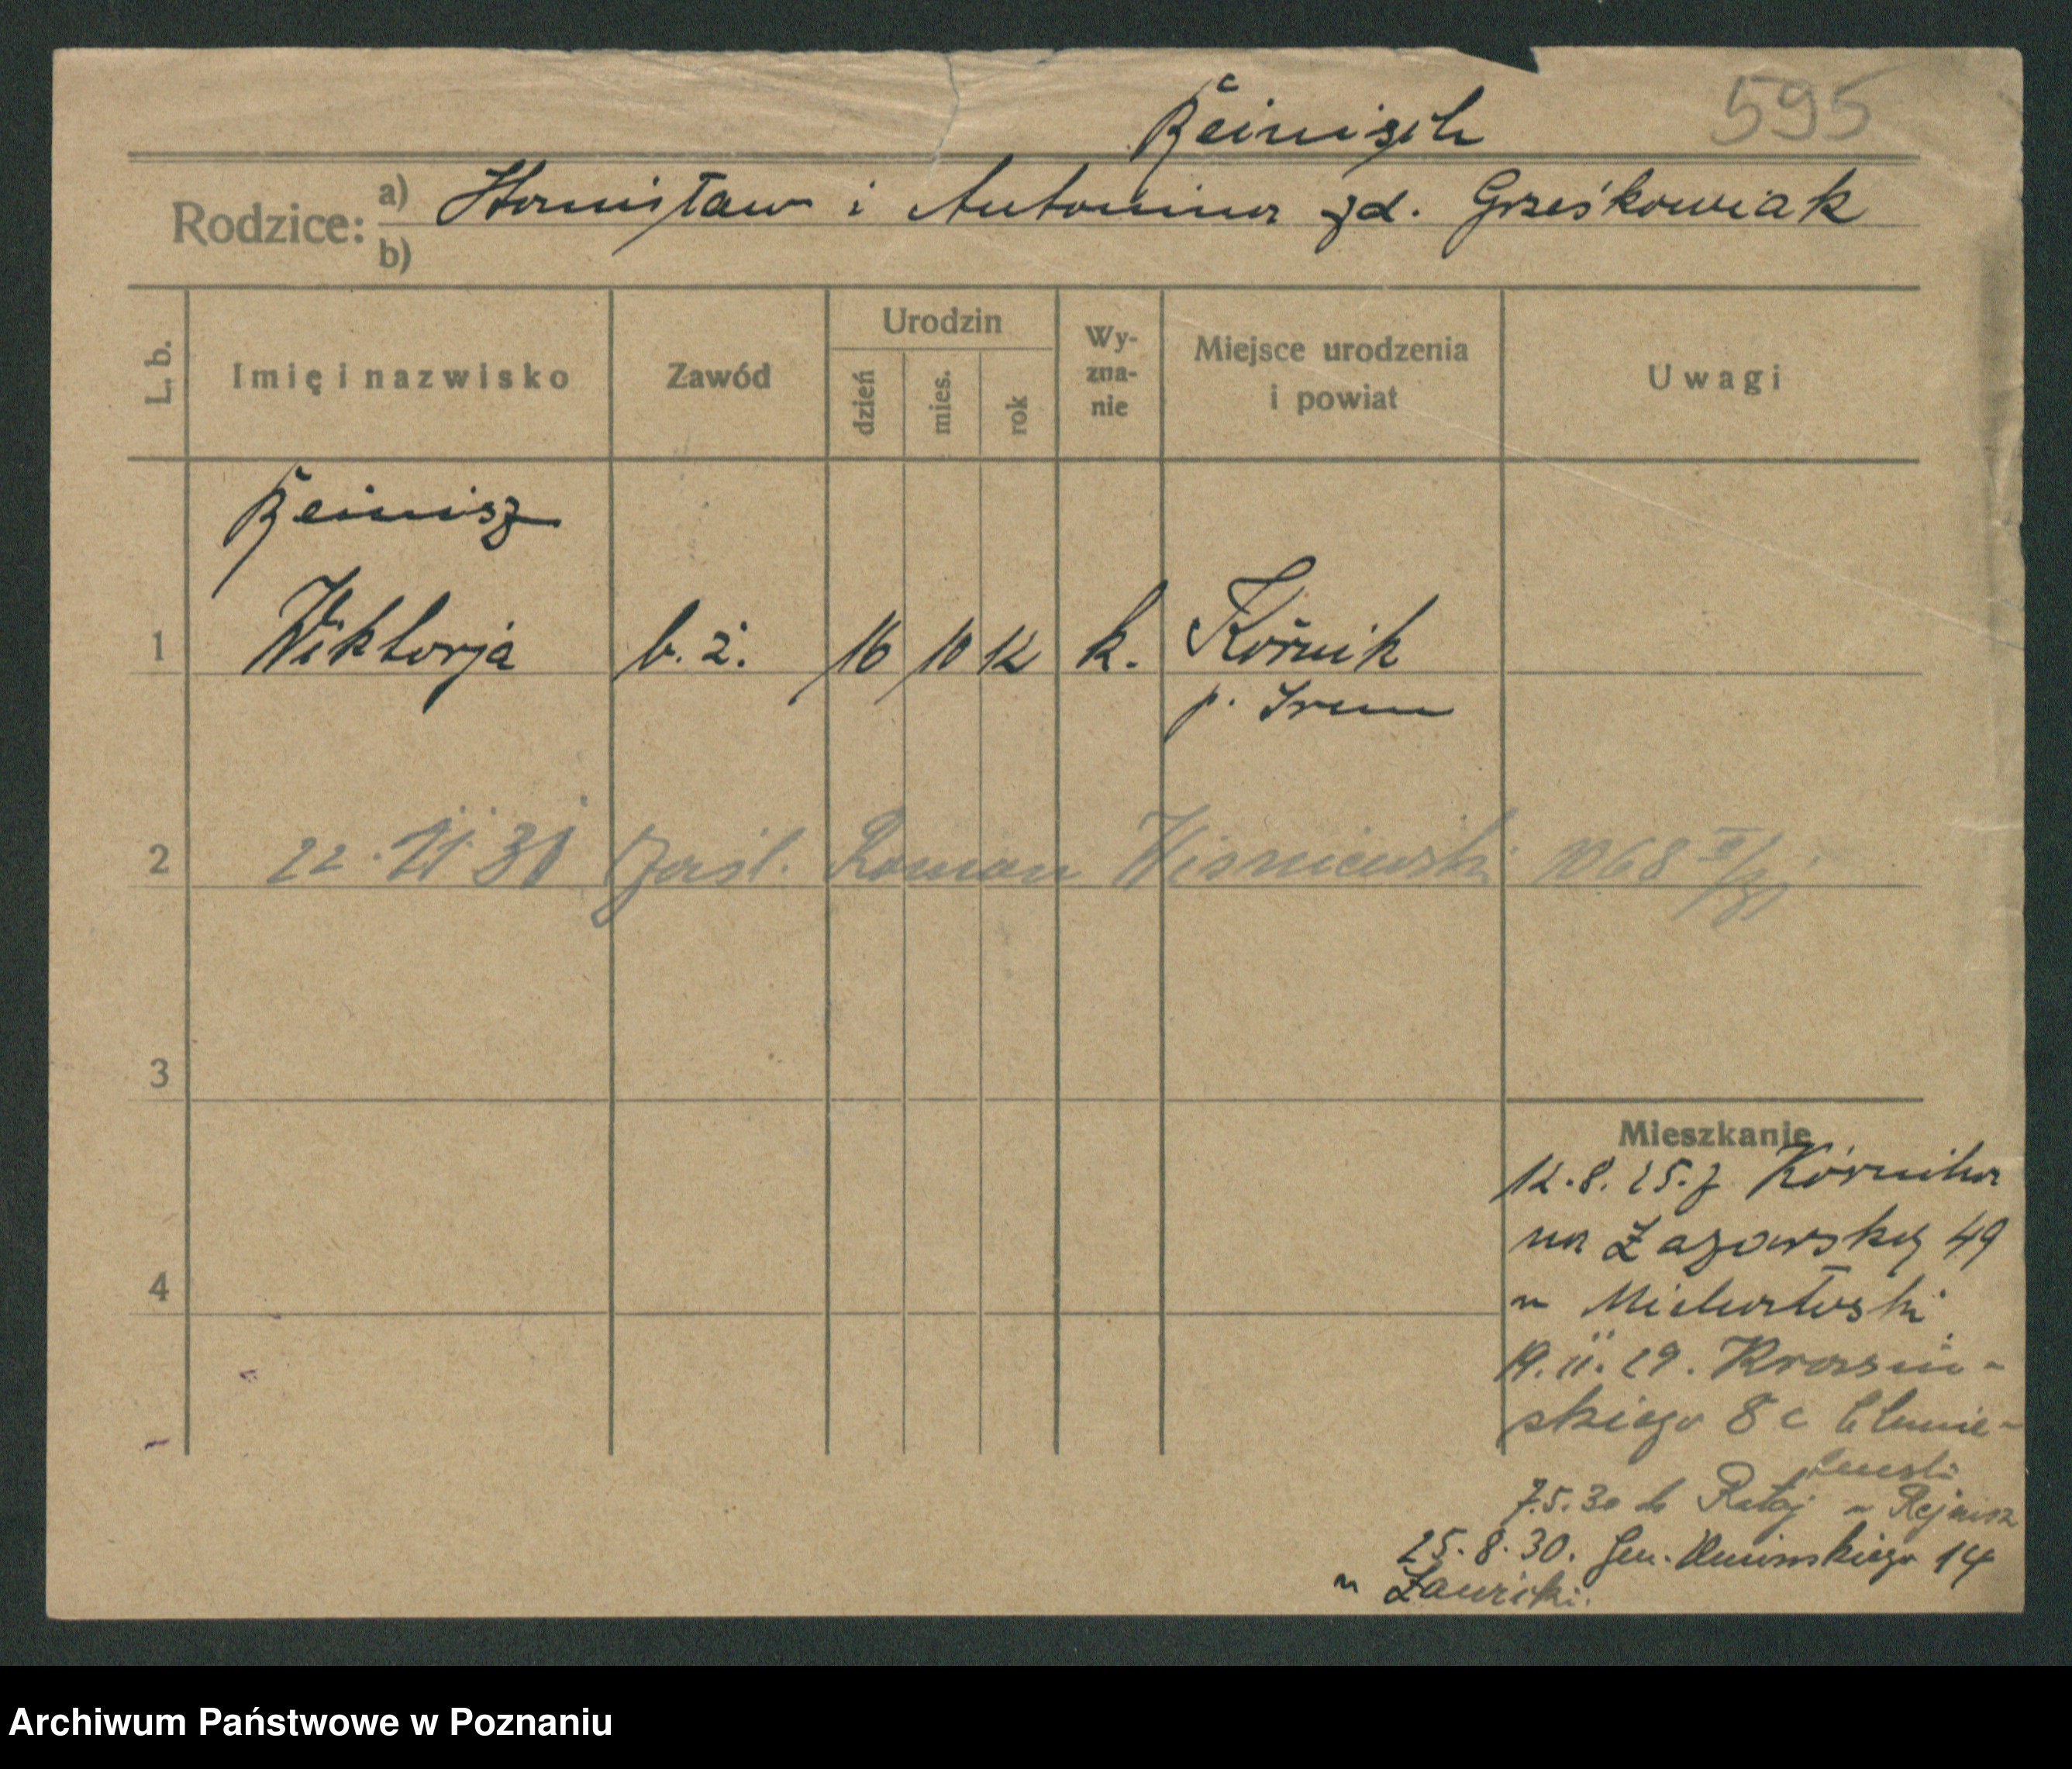 595
Reinisch
Rodzice: a) Stanisław i Antonina zd. Grześkowiak
b)
L. b.
Imię i nazwisko
Zawód
Urodzin
dzień
mies.
rok
Wy-
zna-
nie
Miejsce urodzenia
i powiat
Uwagi
Reinisz
1 Wiktorja b. z. 16 10 12 k. Kórnik
p. Śrem
2 22. VI 31 zaśl. Roman Wiśniewski 1068 II/31
3
Mieszkanie
12.8.25. z Kórnika
na Łazarską 49
u Michalski
4
19.11.29. Krasiń-
skiego 8 c
7.5.30 do Rataj u Rejnisz
25.8.30. Gen. Umińskiego 14
u Ławicki.
Archiwum Państwowe w Poznaniu